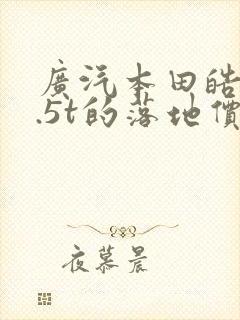 廣汽本田皓
.5t的落地價
夜慕晨